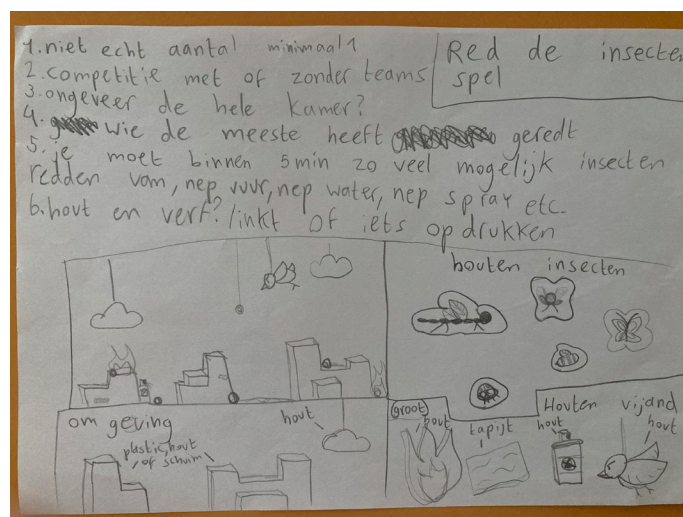 1. niet echt aantal minimaal 1
2. competitie met of zonder teams
3. ongeveer de hele kamer?
4. wie de meeste heeft geredt
5. je moet binnen 5 min zo veel mogelijk insecten
redden vam, nep vuur, nep water, nep spray etc.
6. hout en verf?/inkt of iets opdrukken
Red de insecten
spel
houten insecten
om geving
hout
plastic, hout
of schuim
groot
hout
tapijt
Houten vijand
hout
hout